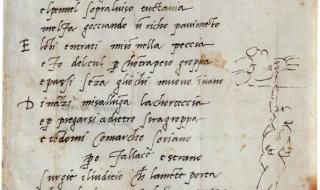 elpennel sopraluiso tuctavia
melfa gocciando ū richo pavimeto
E lobi entrati misō nella peccia
e fo delcul p chōtrapeso groppa
e passi seza gliochi muovo ivano
Dinazi misaluga lachorteccia
e p piegarsi adietro siragroppa
e tedomi comarcho soriano
po fallace e strano
surgie iliuditio ch lamete porta